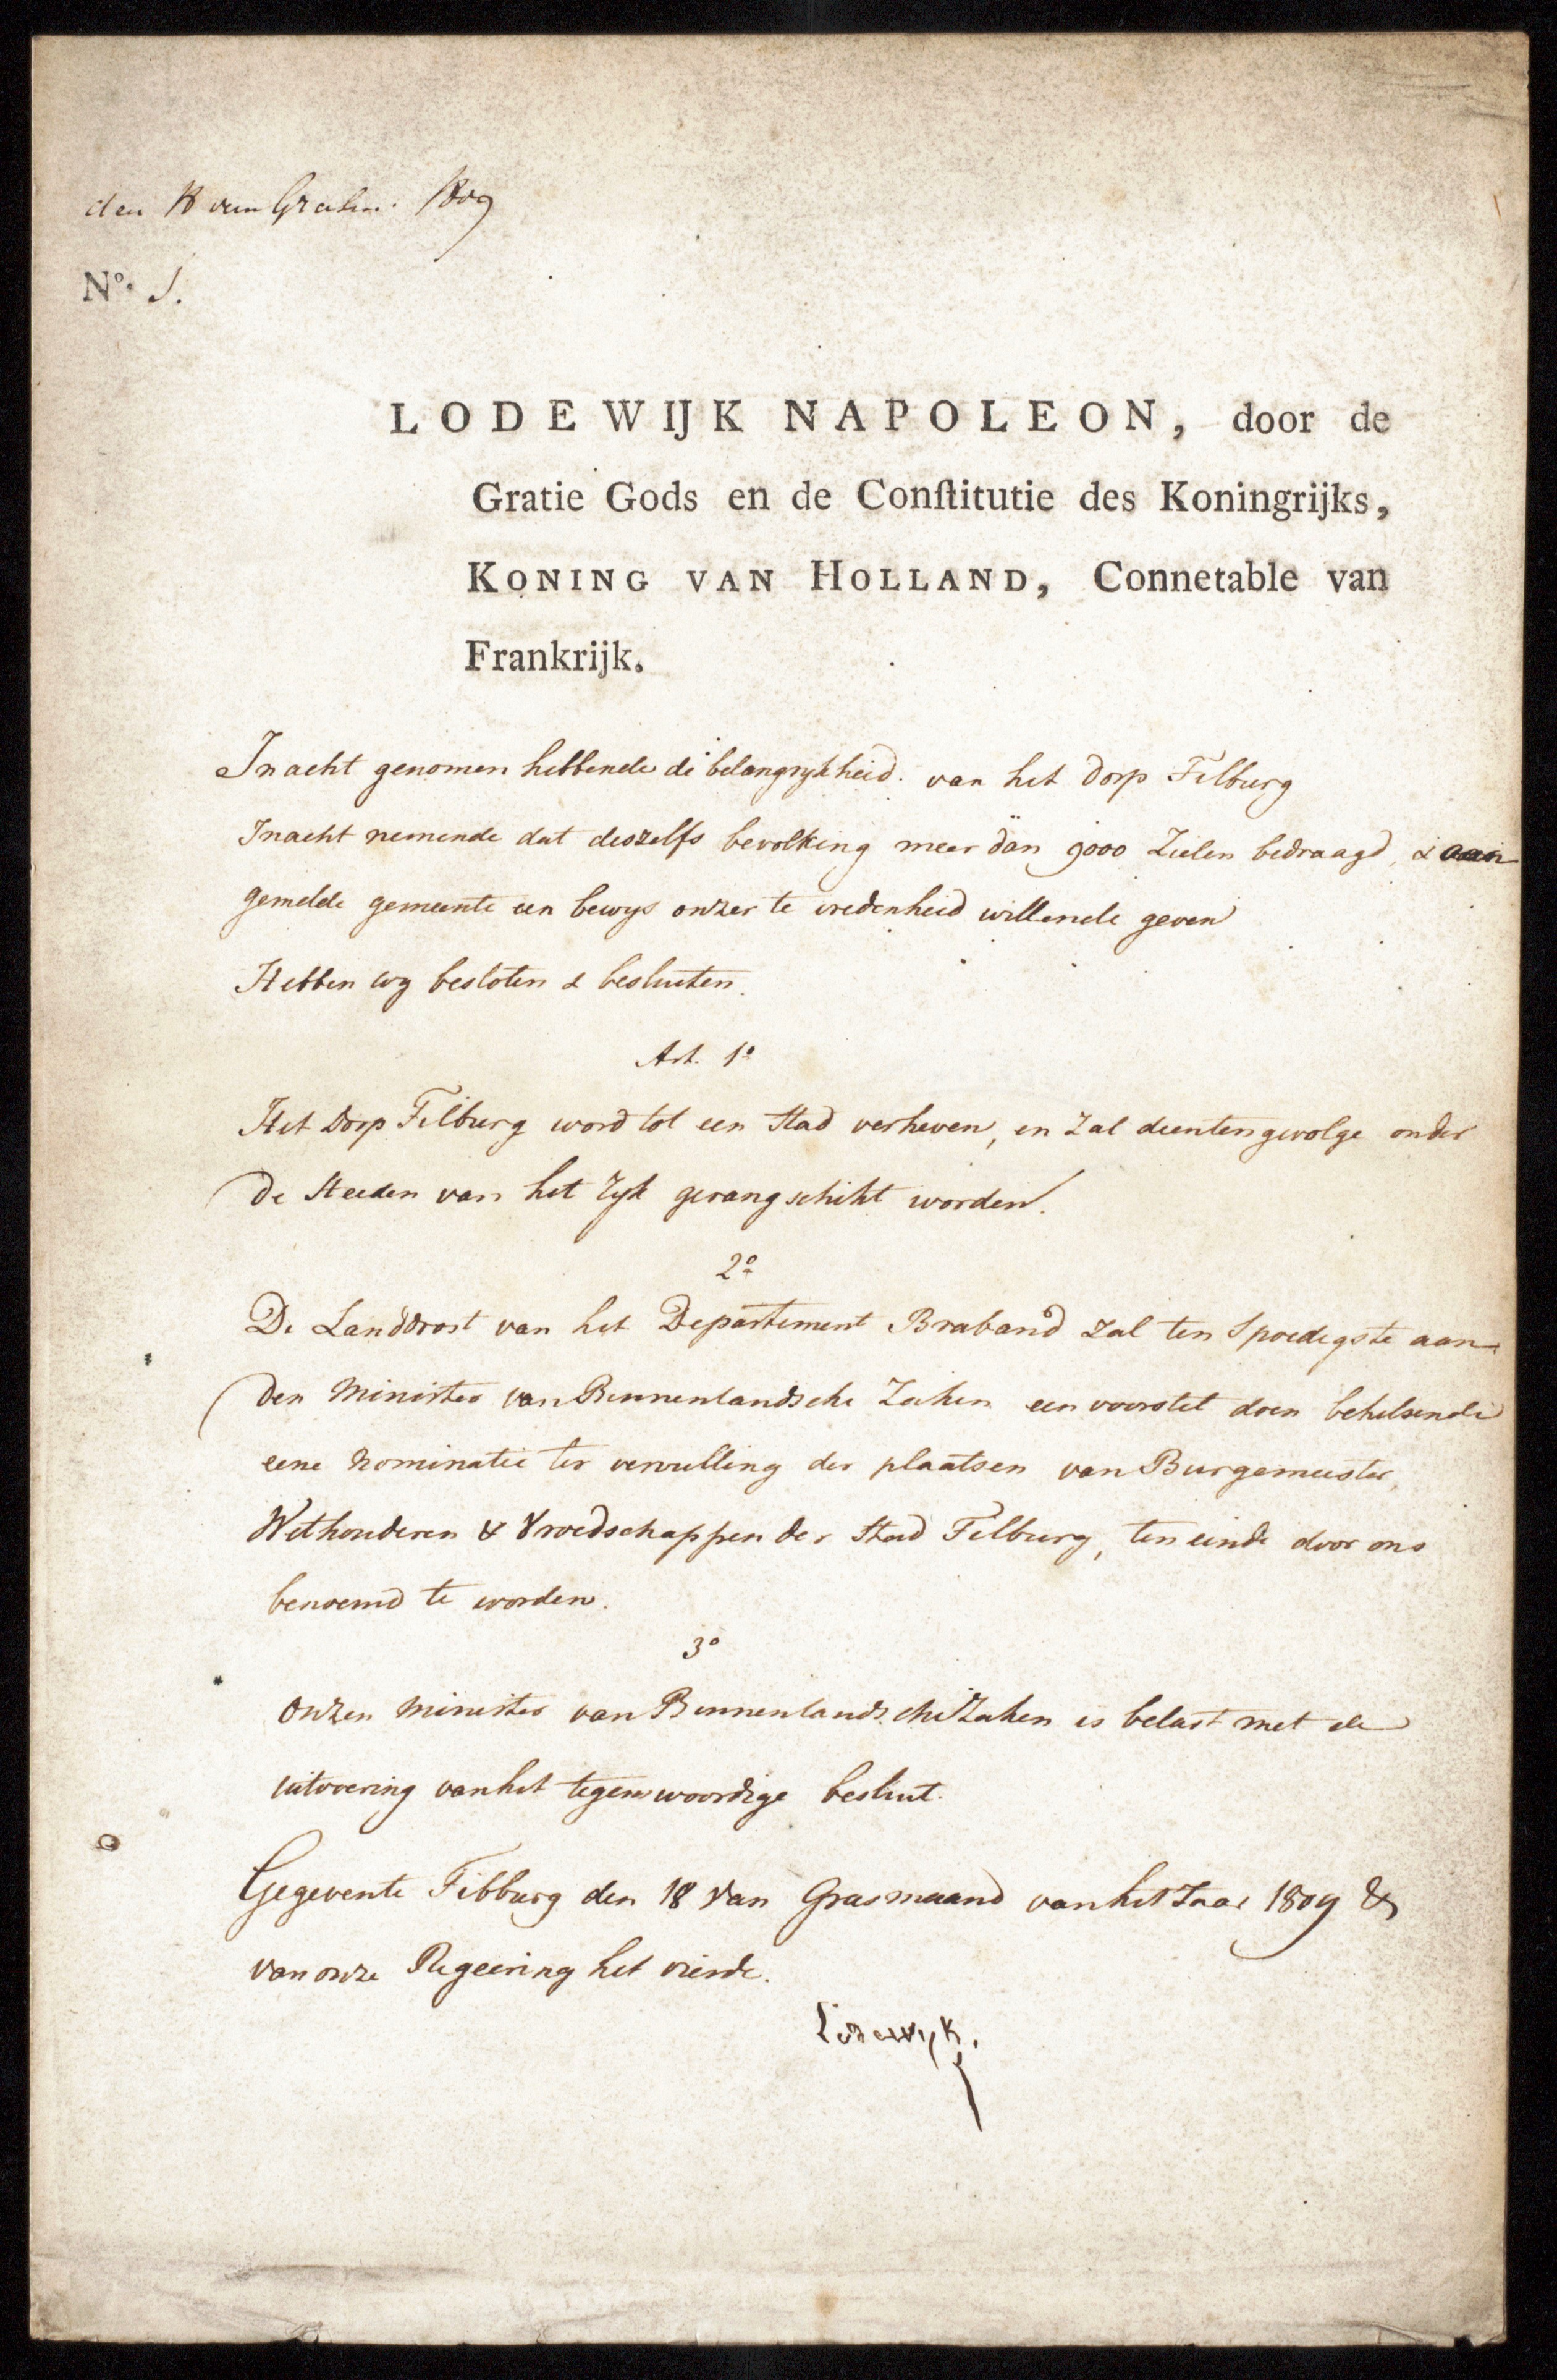 den 18 van Grasm. 1809
Nº. 5.
LODEWIJK NAPOLEON, door de
Gratie Gods en de Conſtitutie des Koningrijks,
KONING VAN HOLLAND, Connetable van
Frankrijk.
In acht genomen hebbende de belangrykheid van het dorp Tilburg
In acht nemende dat deszelfs bevolking meer dan 9000 Zielen bedraagd, & aan
gemelde gemeente een bewys onzer te vredenheid willende geven
Hebben wy besloten & besluiten.
Art. 1º
Het dorp Tilburg word tot een Stad verheven, en zal dientengevolge onder
de steeden van het ryk gerangschikt worden.
2º
De Landdrost van het Departement Braband zal ten Spoedigste aan
den Minister van Binnenlandsche Zaken een voorstel doen behelsende
eene Nominatie ter vervulling der plaatsen van Burgemeester,
Wethouderen & Vroedschappen der Stad Tilburg, ten einde door ons
benoemd te worden.
3º
Onzen Minister van Binnenlandsche Zaken is belast met de
uitvoering van het tegenwoordige besluit.
Gegeven te Tilburg den 18 van Grasmaand van het Jaar 1809 &
van onze Regeering het vierde.
Lodewijk.